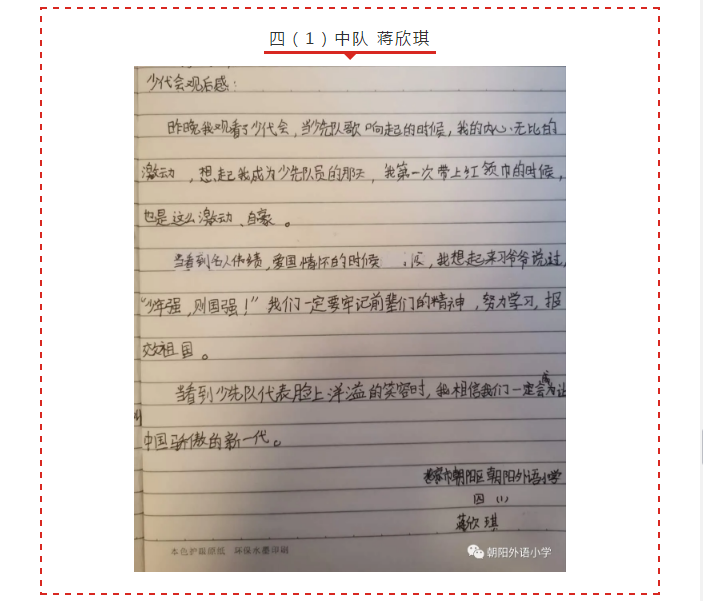 四（1）中队 蒋欣琪
少代会观后感：
昨晚我观看了少代会，当少先队歌响起的时候，我的内心无比的
激动，想起我成为少先队员的那天，我第一次带上红领巾的时候，
也是这么激动、自豪。
当看到名人伟绩，爱国情怀的时候，我想起来习爷爷说过，
“少年强，则国强！”我们一定要牢记前辈们的精神，努力学习，报
效祖国。
当看到少先队代表脸上洋溢的笑容时，我相信我们一定会成为让
中国骄傲的新一代。
朝阳区朝阳外语小学
四（1）
蒋欣琪
本色护眼原纸 环保水墨印刷
朝阳外语小学